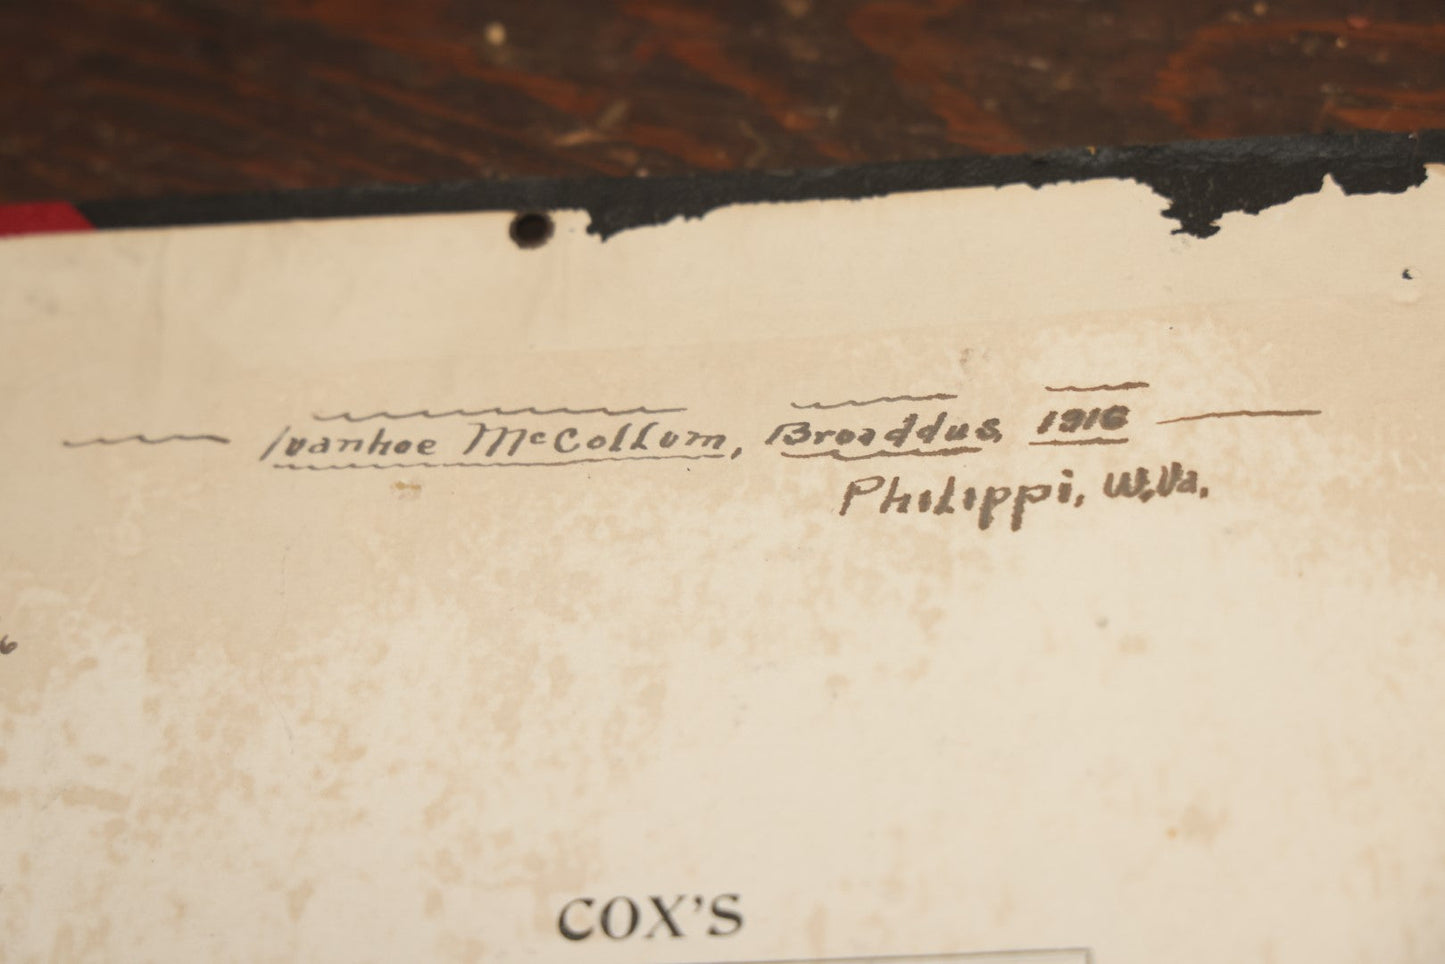 Ivanhoe McCollum, Broaddus, 1916
Philippi, W.Va.
6
COX'S